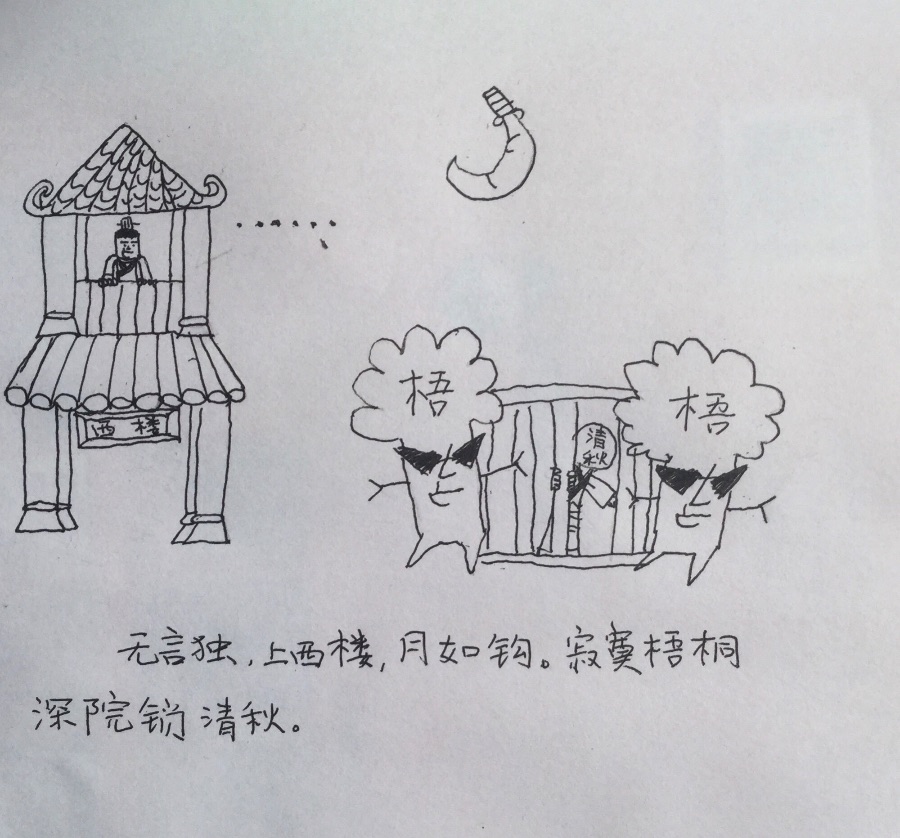 西楼
梧
梧
清
秋
无言独,上西楼,月如钩。寂寞梧桐
深院锁清秋。